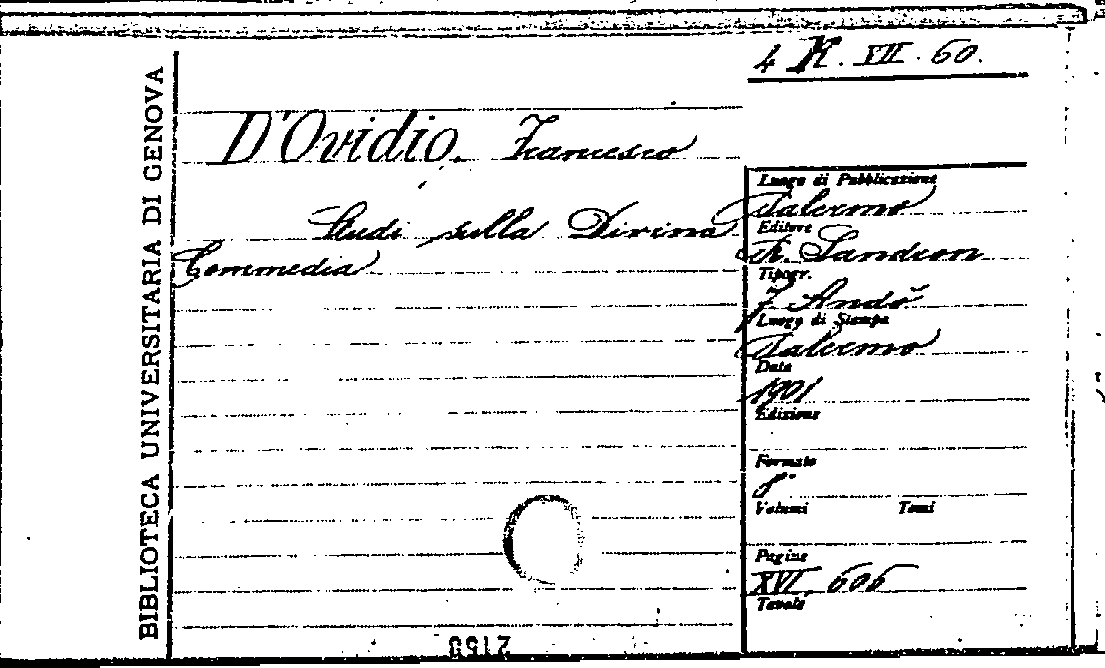 4 K. VII. 60.
BIBLIOTECA UNIVERSITARIA DI GENOVA
D'Ovidio, Francesco
Studi sulla Divina
Commedia
Luogo di Pubblicazione
Palermo
Editore
R. Sandron
Tipogr.
F. Andò
Luogo di Stampa
Palermo
Data
1901
Edizione
Formato
8°
Volumi Tomi
Pagine
XVI, 606
Tavole